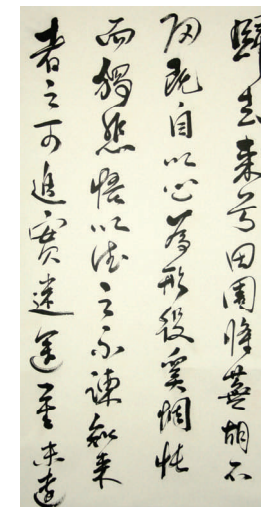 歸去來兮田園將蕪胡不
歸既自以心為形役奚惆悵
而獨悲悟以往之不諫知來
者之可追實迷途其未遠